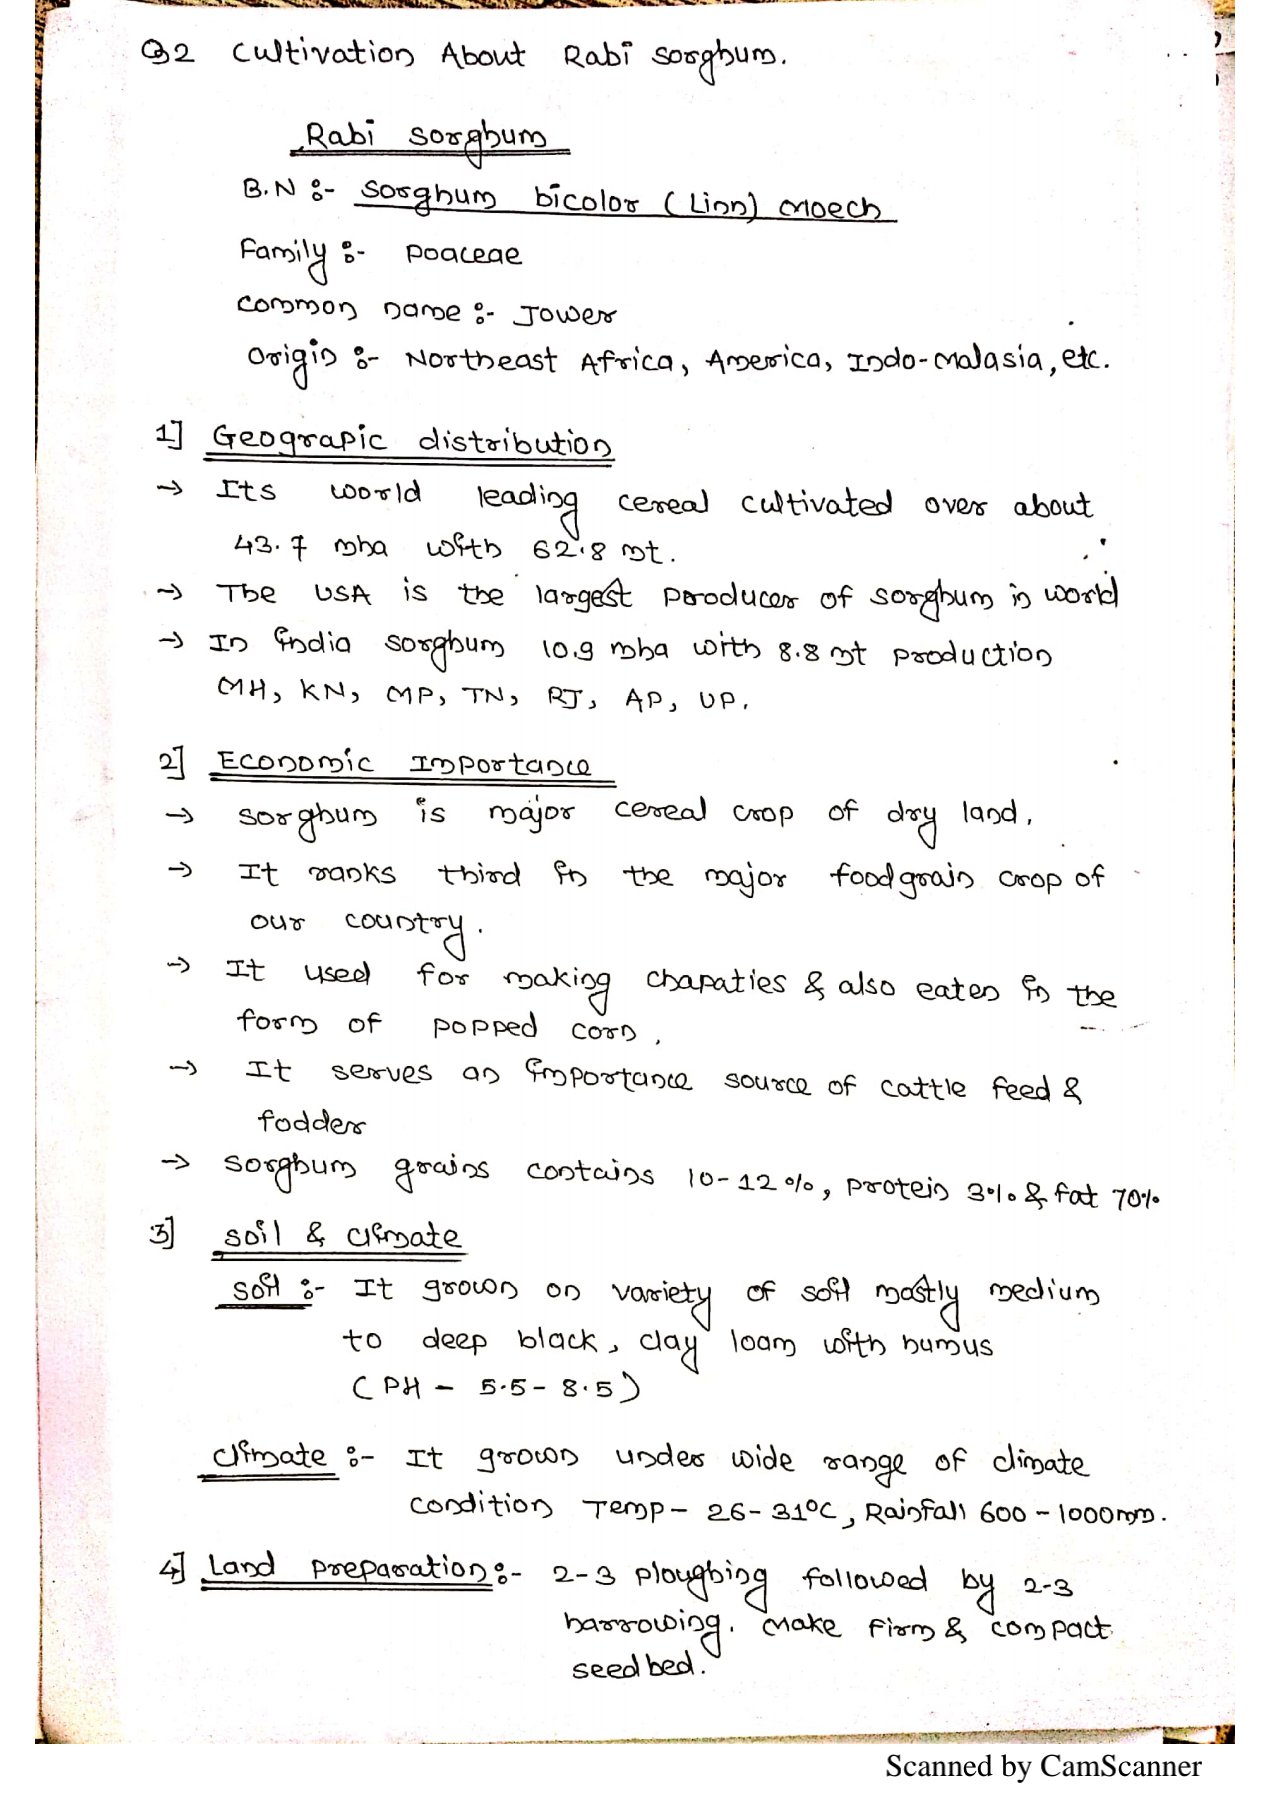 Q2 Cultivation About Rabi sorghum.
Rabi sorghum
B.N :- sorghum bicolor (Linn) moech
Family :- poaceae
common name :- Jower
Origin :- Northeast Africa, America, Indo-malasia, etc.
1] Geograpic distribution
→ Its world leading cereal cultivated over about
43.7 mha with 62.8 mt.
→ The USA is the largest producer of sorghum in world
→ In india sorghum 10.9 mha with 8.8 mt production
MH, KN, MP, TN, RJ, AP, UP.
2] Economic Importance
→ sorghum is major cereal crop of dry land.
→ It ranks third in the major foodgrain crop of
our country.
→ It used for making chapaties & also eaten in the
form of popped corn.
→ It serves an importance source of cattle feed &
fodder
→ sorghum grains contains 10-12%, protein 3% & fat 70%
3] soil & climate
soil :- It grown on variety of soil mostly medium
to deep black, clay loam with humus
(PH - 5.5 - 8.5)
climate :- It grown under wide range of climate
condition Temp - 26-31°C, Rainfall 600 - 1000mm.
4] Land preparation :- 2-3 ploughing followed by 2-3
harrowing. make firm & compact
seed bed.
Scanned by CamScanner